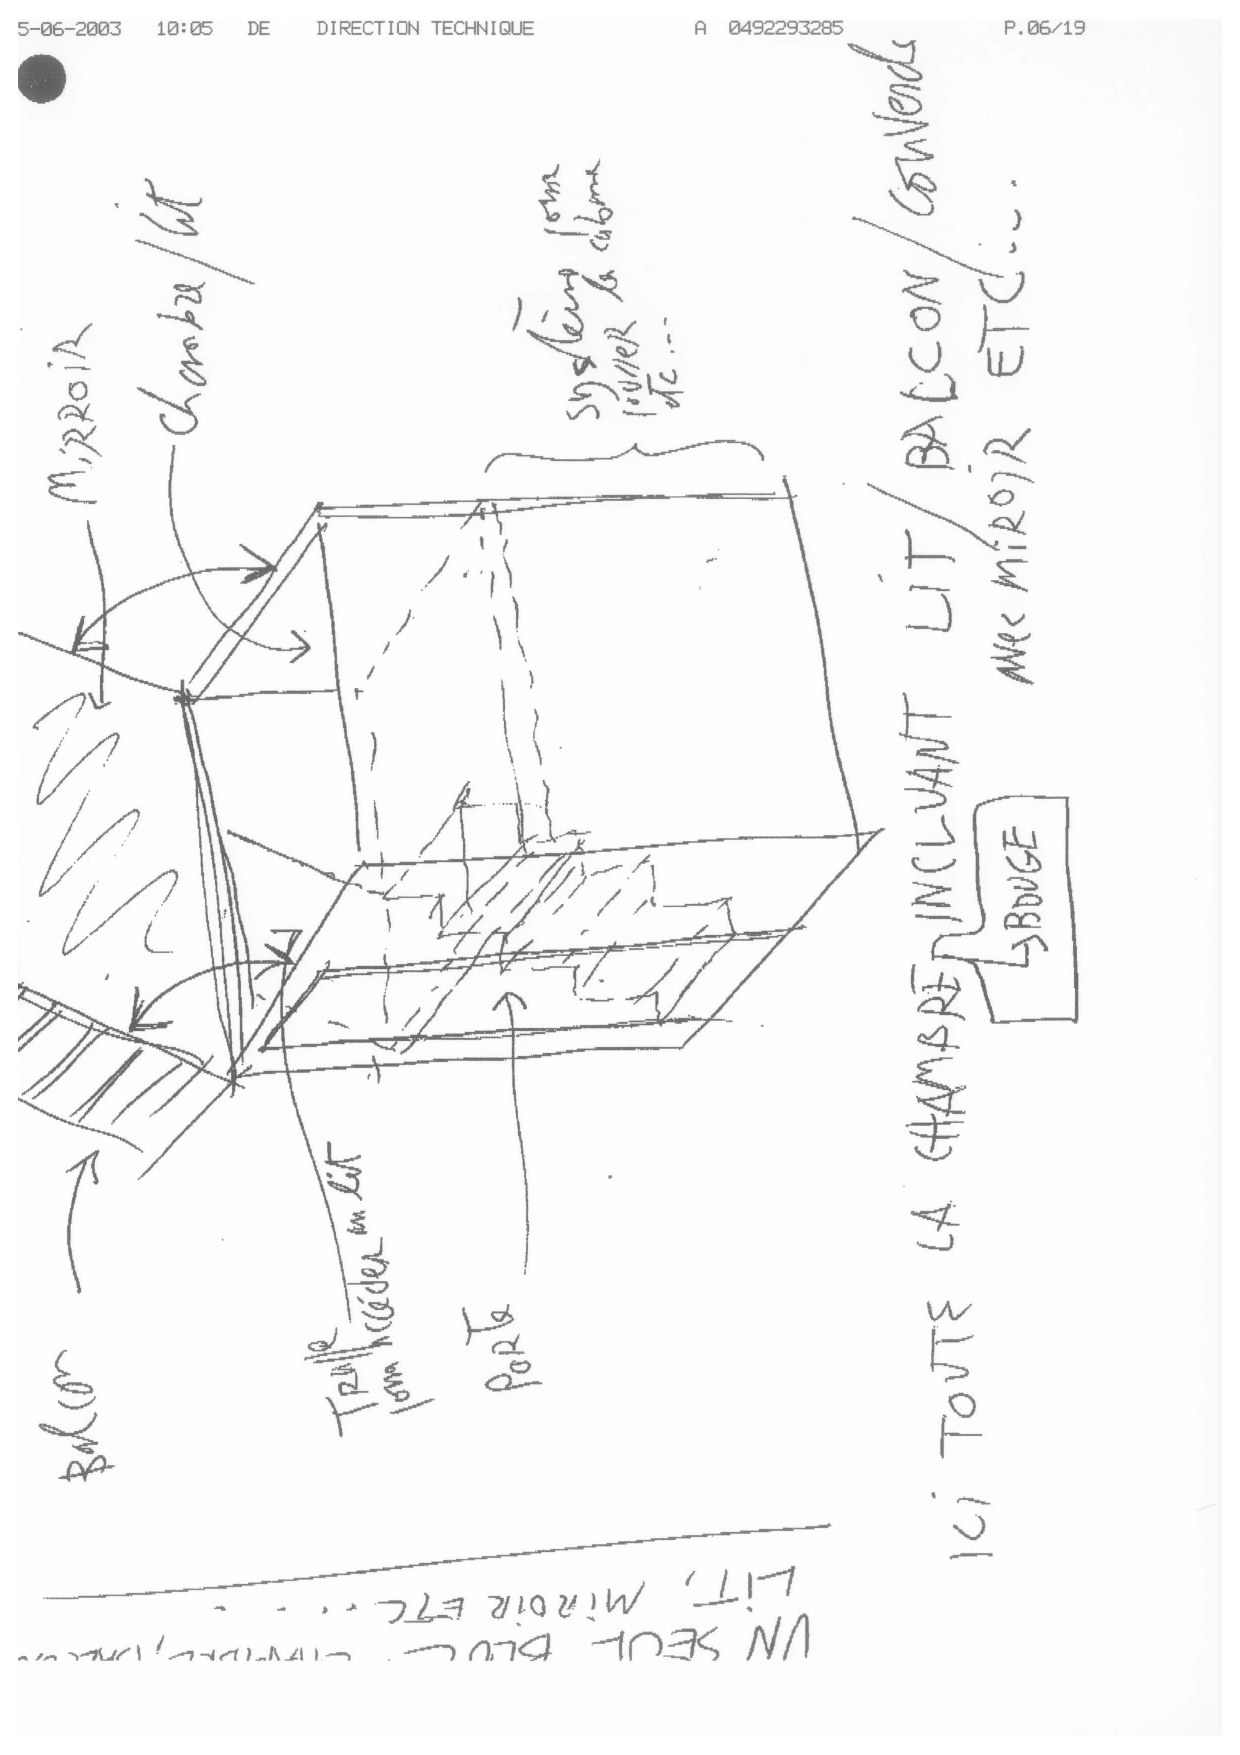 5-06-2003 10:05 DE DIRECTION TECHNIQUE A 0492293285 P.06/19
MiRROiR
Chambre / lit
Système pour
pousser la cabine
etc...
Balcon
TRaPPe
pour accéder au lit
PoRTe
ICi TOUTE LA CHAMBRE INCLUANT LIT / BALCON /
AVec MiROiR ETC....
↳BOUGE
UN SEUL BLOC
LiT, MiROiR ETC....